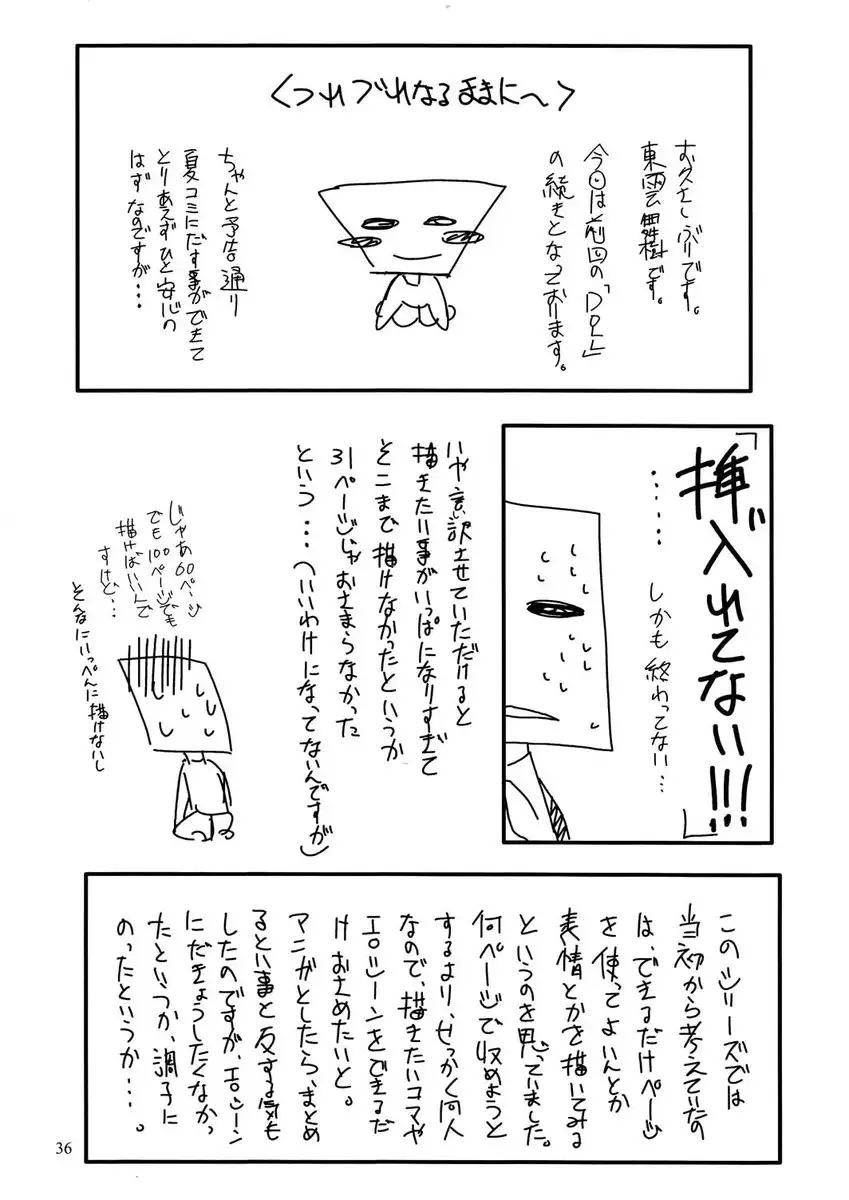 〈つれづれなるままに〜〉
お久しぶりです。
東雲舞樹です。
今回は前回の「DOLL」
の続きとなっております。
ちゃんと予告通り
夏コミにだす事ができて
とりあえずひと安心の
はずなのですが・・・
「挿入れてない!!!」
・・・・・・しかも終わってない・・・
いや言い訳させていただけると
描きたい事がいっぱいになりすぎて
そこまで描けなかったというか
31ページじゃおさまらなかった
という・・・(いいわけになってないんですが)
じゃあ60ページ
でも100ページでも
描けばいいんで
すけど・・・
そんなにいっぺんに描けないし
このシリーズでは
当初から考えていたの
は、できるだけページ
を使ってよいんとか
表情とかを描いてみる
というのを思っていました。
何ページで収めようと
するより、せっかく同人
なので、描きたいコマや
エロシーンをできるだ
けおさめたいと。
マンガとしたら、まとめ
るとい事と反する気も
したのですが、エロシーン
にだきょうしたくなかっ
たといつか、調子に
のったというか・・・。
36